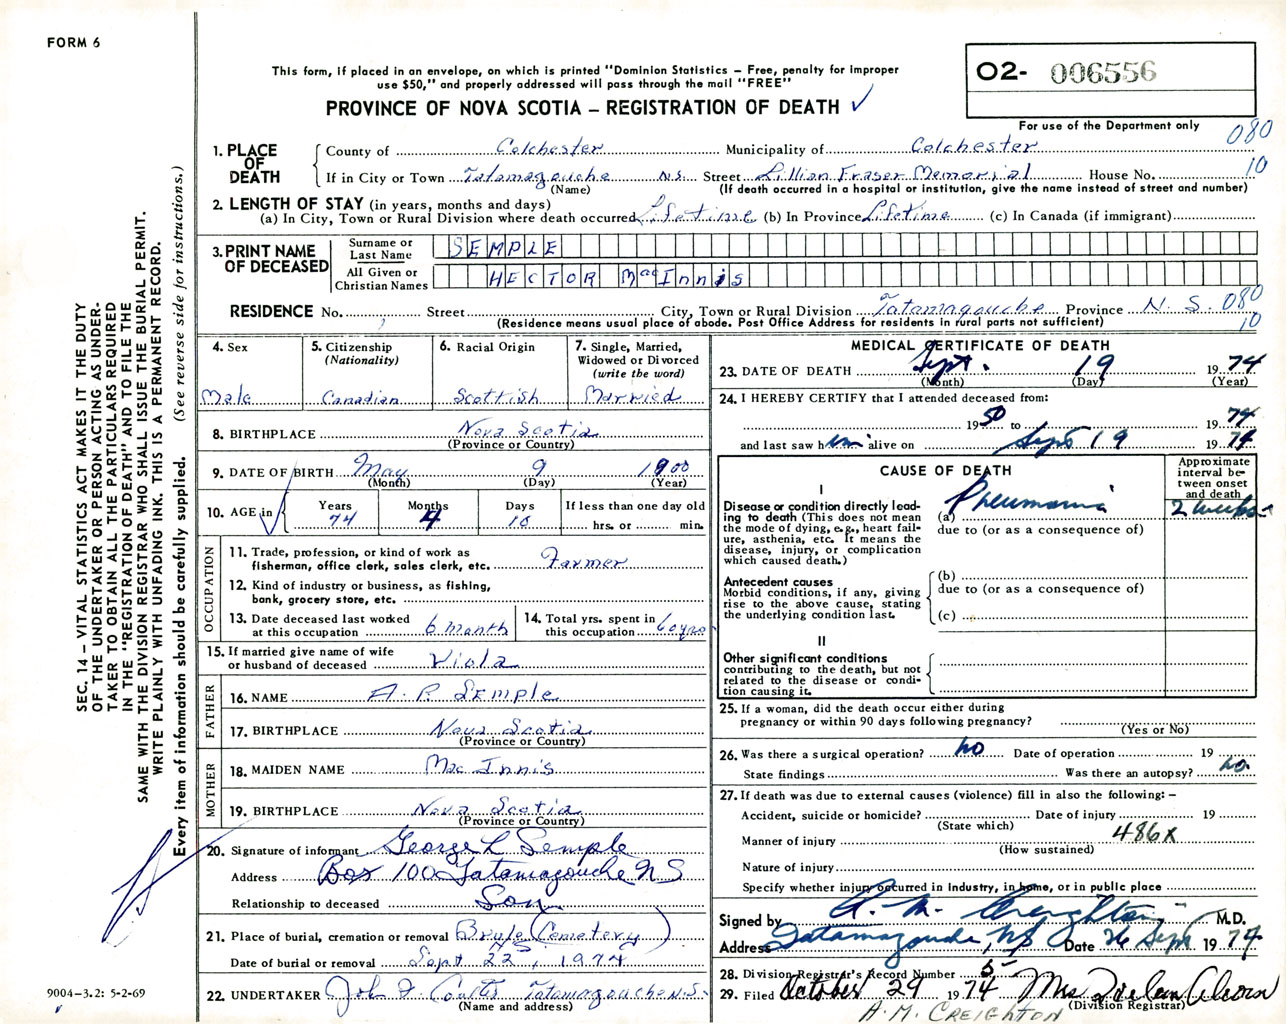 FORM 6
This form, if placed in an envelope, on which is printed "Dominion Statistics – Free, penalty for improper
use $50," and properly addressed will pass through the mail "FREE"
PROVINCE OF NOVA SCOTIA – REGISTRATION OF DEATH ✓
O2- 006556
For use of the Department only
080
10
1. PLACE OF DEATH
County of Colchester Municipality of Colchester
If in City or Town Tatamagouche N.S. Street Lillian Fraser Memorial House No.
(Name) (If death occurred in a hospital or institution, give the name instead of street and number)
2. LENGTH OF STAY (in years, months and days)
(a) In City, Town or Rural Division where death occurred Lifetime (b) In Province Lifetime (c) In Canada (if immigrant)
3. PRINT NAME OF DECEASED
Surname or Last Name SEMPLE
All Given or Christian Names HECTOR MacInnis
RESIDENCE No. Street City, Town or Rural Division Tatamagouche Province N.S. 080
(Residence means usual place of abode. Post Office Address for residents in rural parts not sufficient) 10
4. Sex
Male
5. Citizenship
(Nationality)
Canadian
6. Racial Origin
Scottish
7. Single, Married,
Widowed or Divorced
(write the word)
Married
8. BIRTHPLACE Nova Scotia
(Province or Country)
9. DATE OF BIRTH May 9 1900
(Month) (Day) (Year)
10. AGE in
Years 74
Months 4
Days 10
If less than one day old
hrs. or min.
OCCUPATION
11. Trade, profession, or kind of work as
fisherman, office clerk, sales clerk, etc. Farmer
12. Kind of industry or business, as fishing,
bank, grocery store, etc.
13. Date deceased last worked
at this occupation 6 month
14. Total yrs. spent in
this occupation 60 yrs
15. If married give name of wife
or husband of deceased Viola
FATHER
16. NAME A. P. Semple
17. BIRTHPLACE Nova Scotia
(Province or Country)
MOTHER
18. MAIDEN NAME Mac Innis
19. BIRTHPLACE Nova Scotia
(Province or Country)
20. Signature of informant George L Semple
Address Box 100 Tatamagouche N S
Relationship to deceased Son
21. Place of burial, cremation or removal Brule (Cemetery)
NS
Date of burial or removal Sept 22, 1974
22. UNDERTAKER Tatamagouche N.S.
(Name and address)
MEDICAL CERTIFICATE OF DEATH
23. DATE OF DEATH Sept. 19 1974
(Month) (Day) (Year)
24. I HEREBY CERTIFY that I attended deceased from:
1950 to 1974
and last saw him alive on Sept 19 1974
CAUSE OF DEATH
Approximate
interval be-
tween onset
and death
I
Disease or condition directly lead-
ing to death (This does not mean
the mode of dying, e.g., heart fail-
ure, asthenia, etc. It means the
disease, injury, or complication
which caused death.)
(a) Pneumonia 2 weeks
due to (or as a consequence of)
Antecedent causes
Morbid conditions, if any, giving
rise to the above cause, stating
the underlying condition last.
(b)
due to (or as a consequence of)
(c)
II
Other significant conditions
contributing to the death, but not
related to the disease or condi-
tion causing it.
25. If a woman, did the death occur either during
pregnancy or within 90 days following pregnancy?
(Yes or No)
26. Was there a surgical operation? no Date of operation 19
State findings Was there an autopsy? no
27. If death was due to external causes (violence) fill in also the following: –
Accident, suicide or homicide? Date of injury 19
(State which)
Manner of injury 486X
(How sustained)
Nature of injury
Specify whether injury occurred in Industry, in home, or in public place
Signed by A. M. Creighton M.D.
Address Tatamagouche, NS Date 26 Sept 1974
28. Division Registrar's Record Number 5
29. Filed October 29 1974 Mrs
(Division Registrar)
A. M. CREIGHTON
SEC. 14 – VITAL STATISTICS ACT MAKES IT THE DUTY
OF THE UNDERTAKER OR PERSON ACTING AS UNDER-
TAKER TO OBTAIN ALL THE PARTICULARS REQUIRED
IN THE "REGISTRATION OF DEATH" AND TO FILE THE
SAME WITH THE DIVISION REGISTRAR WHO SHALL ISSUE THE BURIAL PERMIT.
WRITE PLAINLY WITH UNFADING INK. THIS IS A PERMANENT RECORD.
Every item of information should be carefully supplied. (See reverse side for instructions.)
9004-3.2: 5-2-69